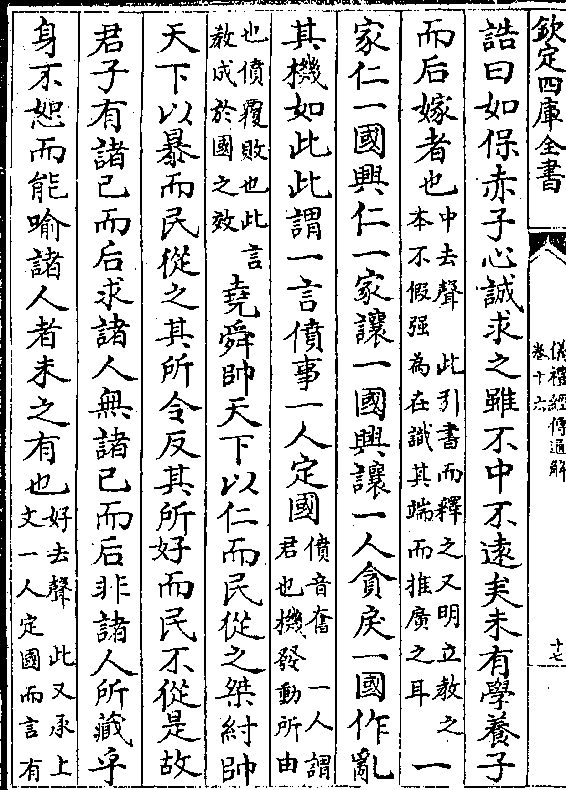 欽定四庫全書
儀禮經傳通解
卷十六
十七
誥曰如保赤子心誠求之雖不中不遠矣未有學養子
而后嫁者也中去聲 此引書而釋之又明立教之
本不假强為在識其端而推廣之耳一
家仁一國興仁一家讓一國興讓一人貪戾一國作亂
其機如此此謂一言僨事一人定國僨音奮 一人謂
君也機發動所由
也僨覆敗也此言
教成於國之效堯舜帥天下以仁而民從之桀紂帥
天下以暴而民從之其所令反其所好而民不從是故
君子有諸己而后求諸人無諸己而后非諸人所藏乎
身不恕而能喻諸人者未之有也好去聲 此又承上
文一人定國而言有